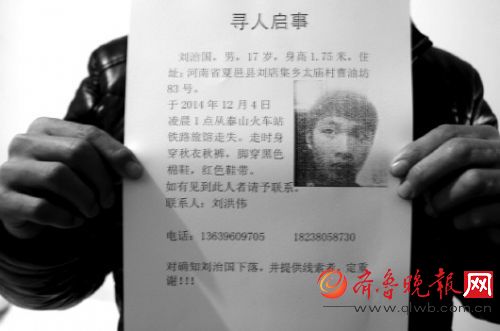 寻人启事
刘治国，男，17岁，身高1.75米，住
址：河南省夏邑县刘店集乡太庙村曹油坊
83号。
于2014年12月4日
凌晨1点从泰山火车站
铁路旅馆走失。走时身
穿秋衣秋裤，脚穿黑色
棉鞋，红色鞋带。
如有见到此人者请予联系。
联系人：刘洪伟
电话：13639609705 18238058730
对确知刘治国下落，并提供线索者，定重
谢!!!
齐鲁晚报网
www.qlwb.com.cn